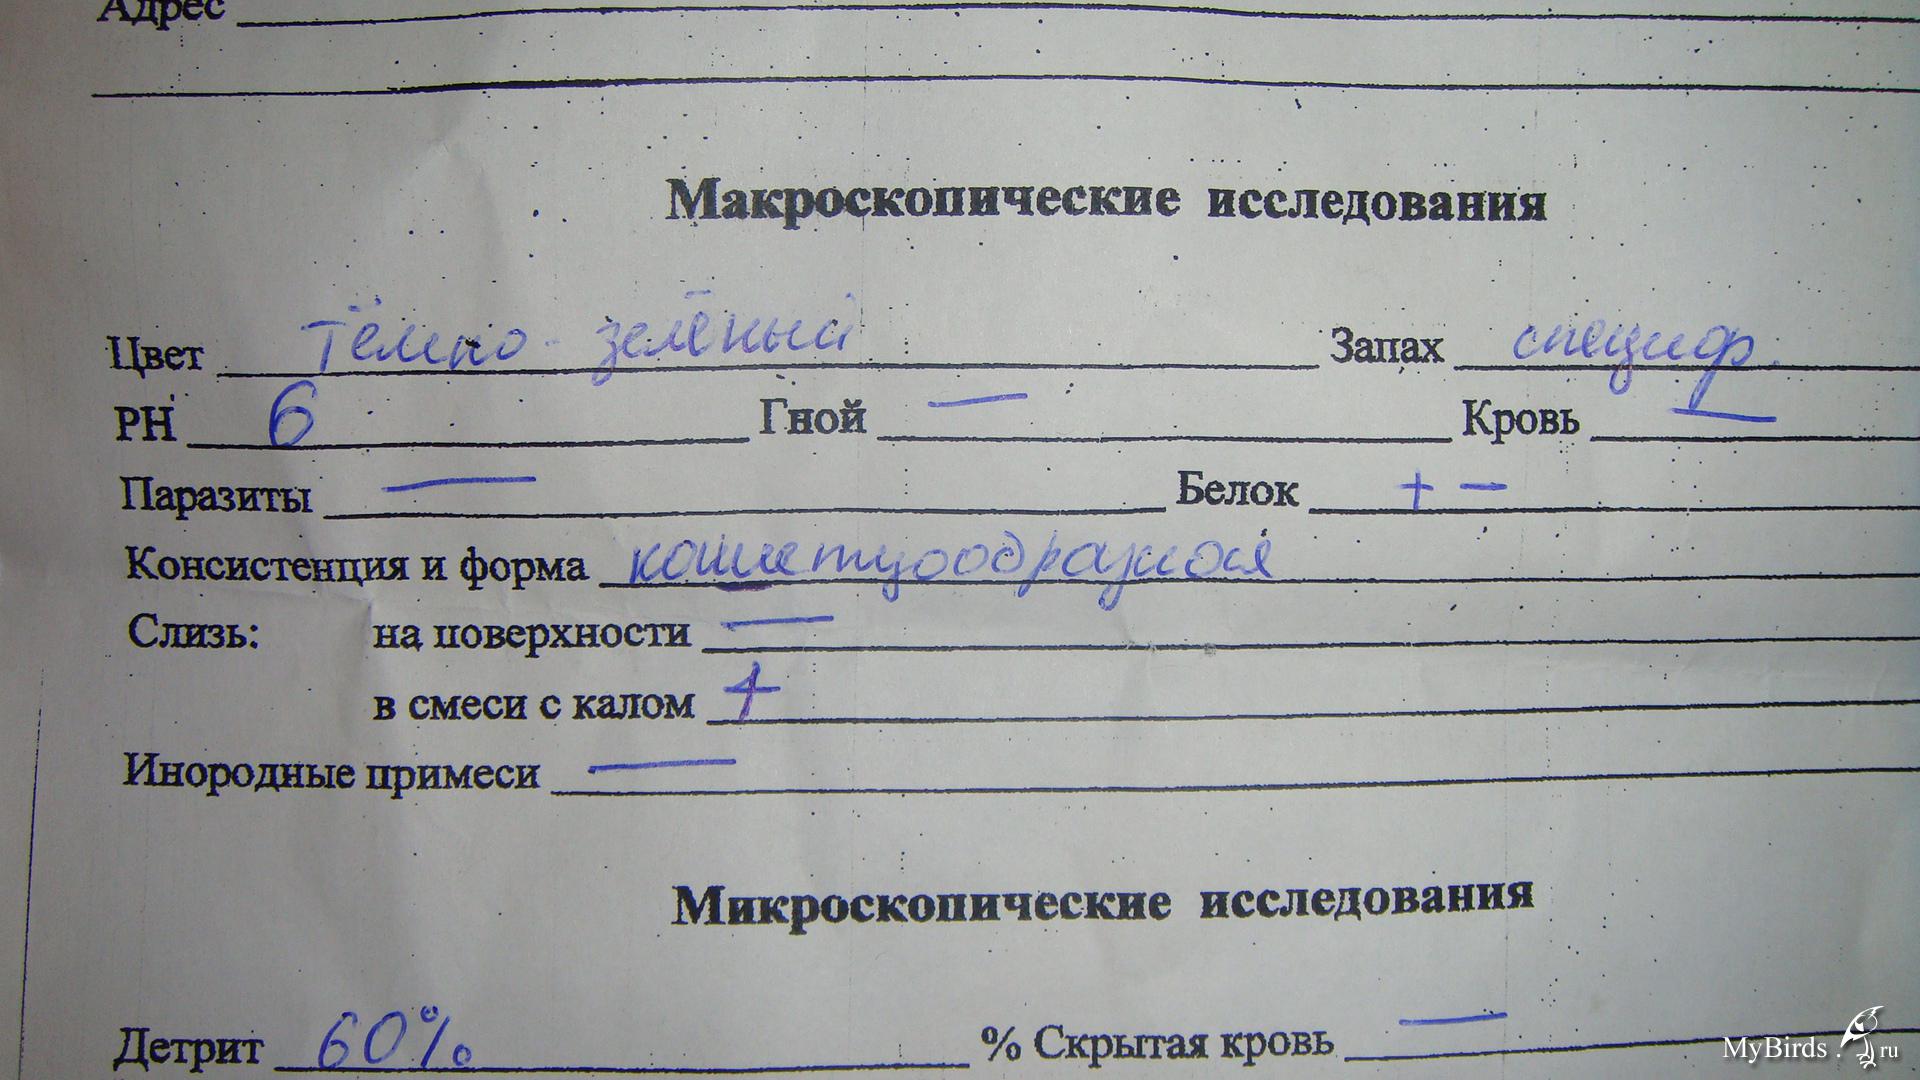 Адрес
Макроскопические исследования
Цвет тёмно-зелёный Запах специф.
PH 6 Гной — Кровь —
Паразиты — Белок + -
Консистенция и форма кашицообразная
Слизь: на поверхности —
в смеси с калом +
Инородные примеси —
Микроскопические исследования
Детрит 60% % Скрытая кровь —
MyBirds.ru